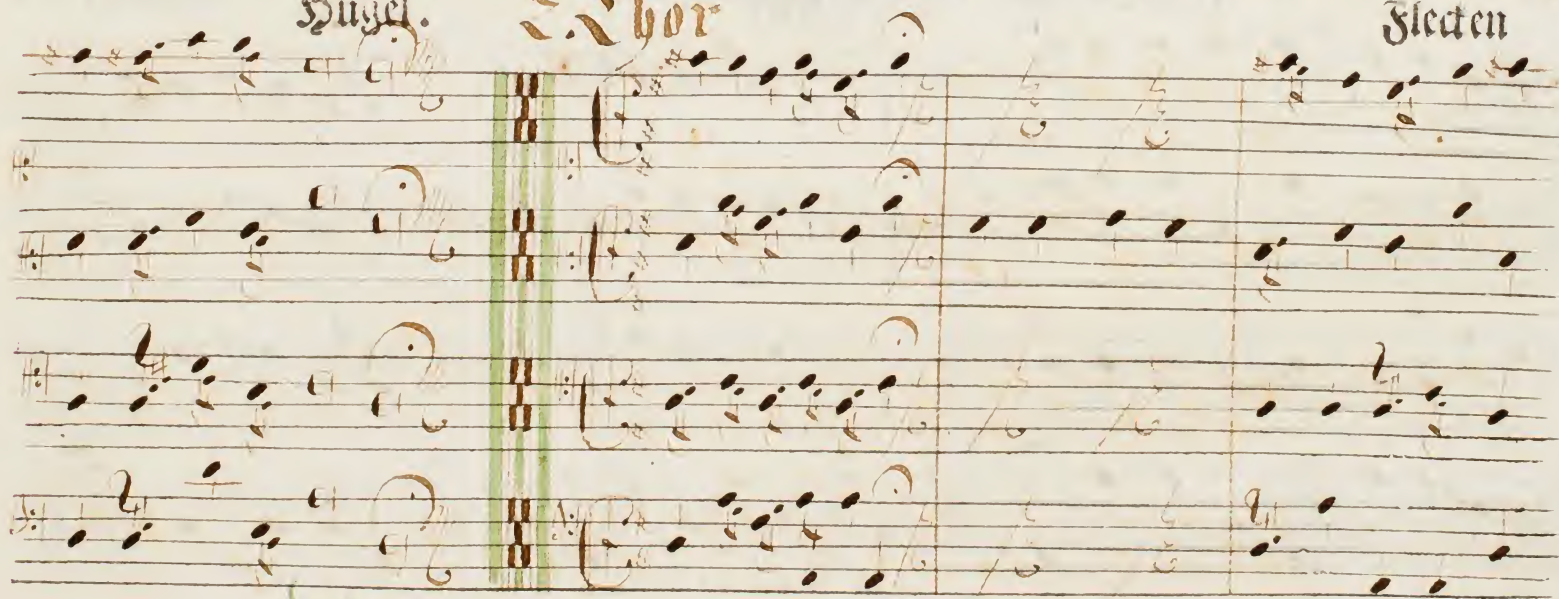 Hügel. Chor Flecken